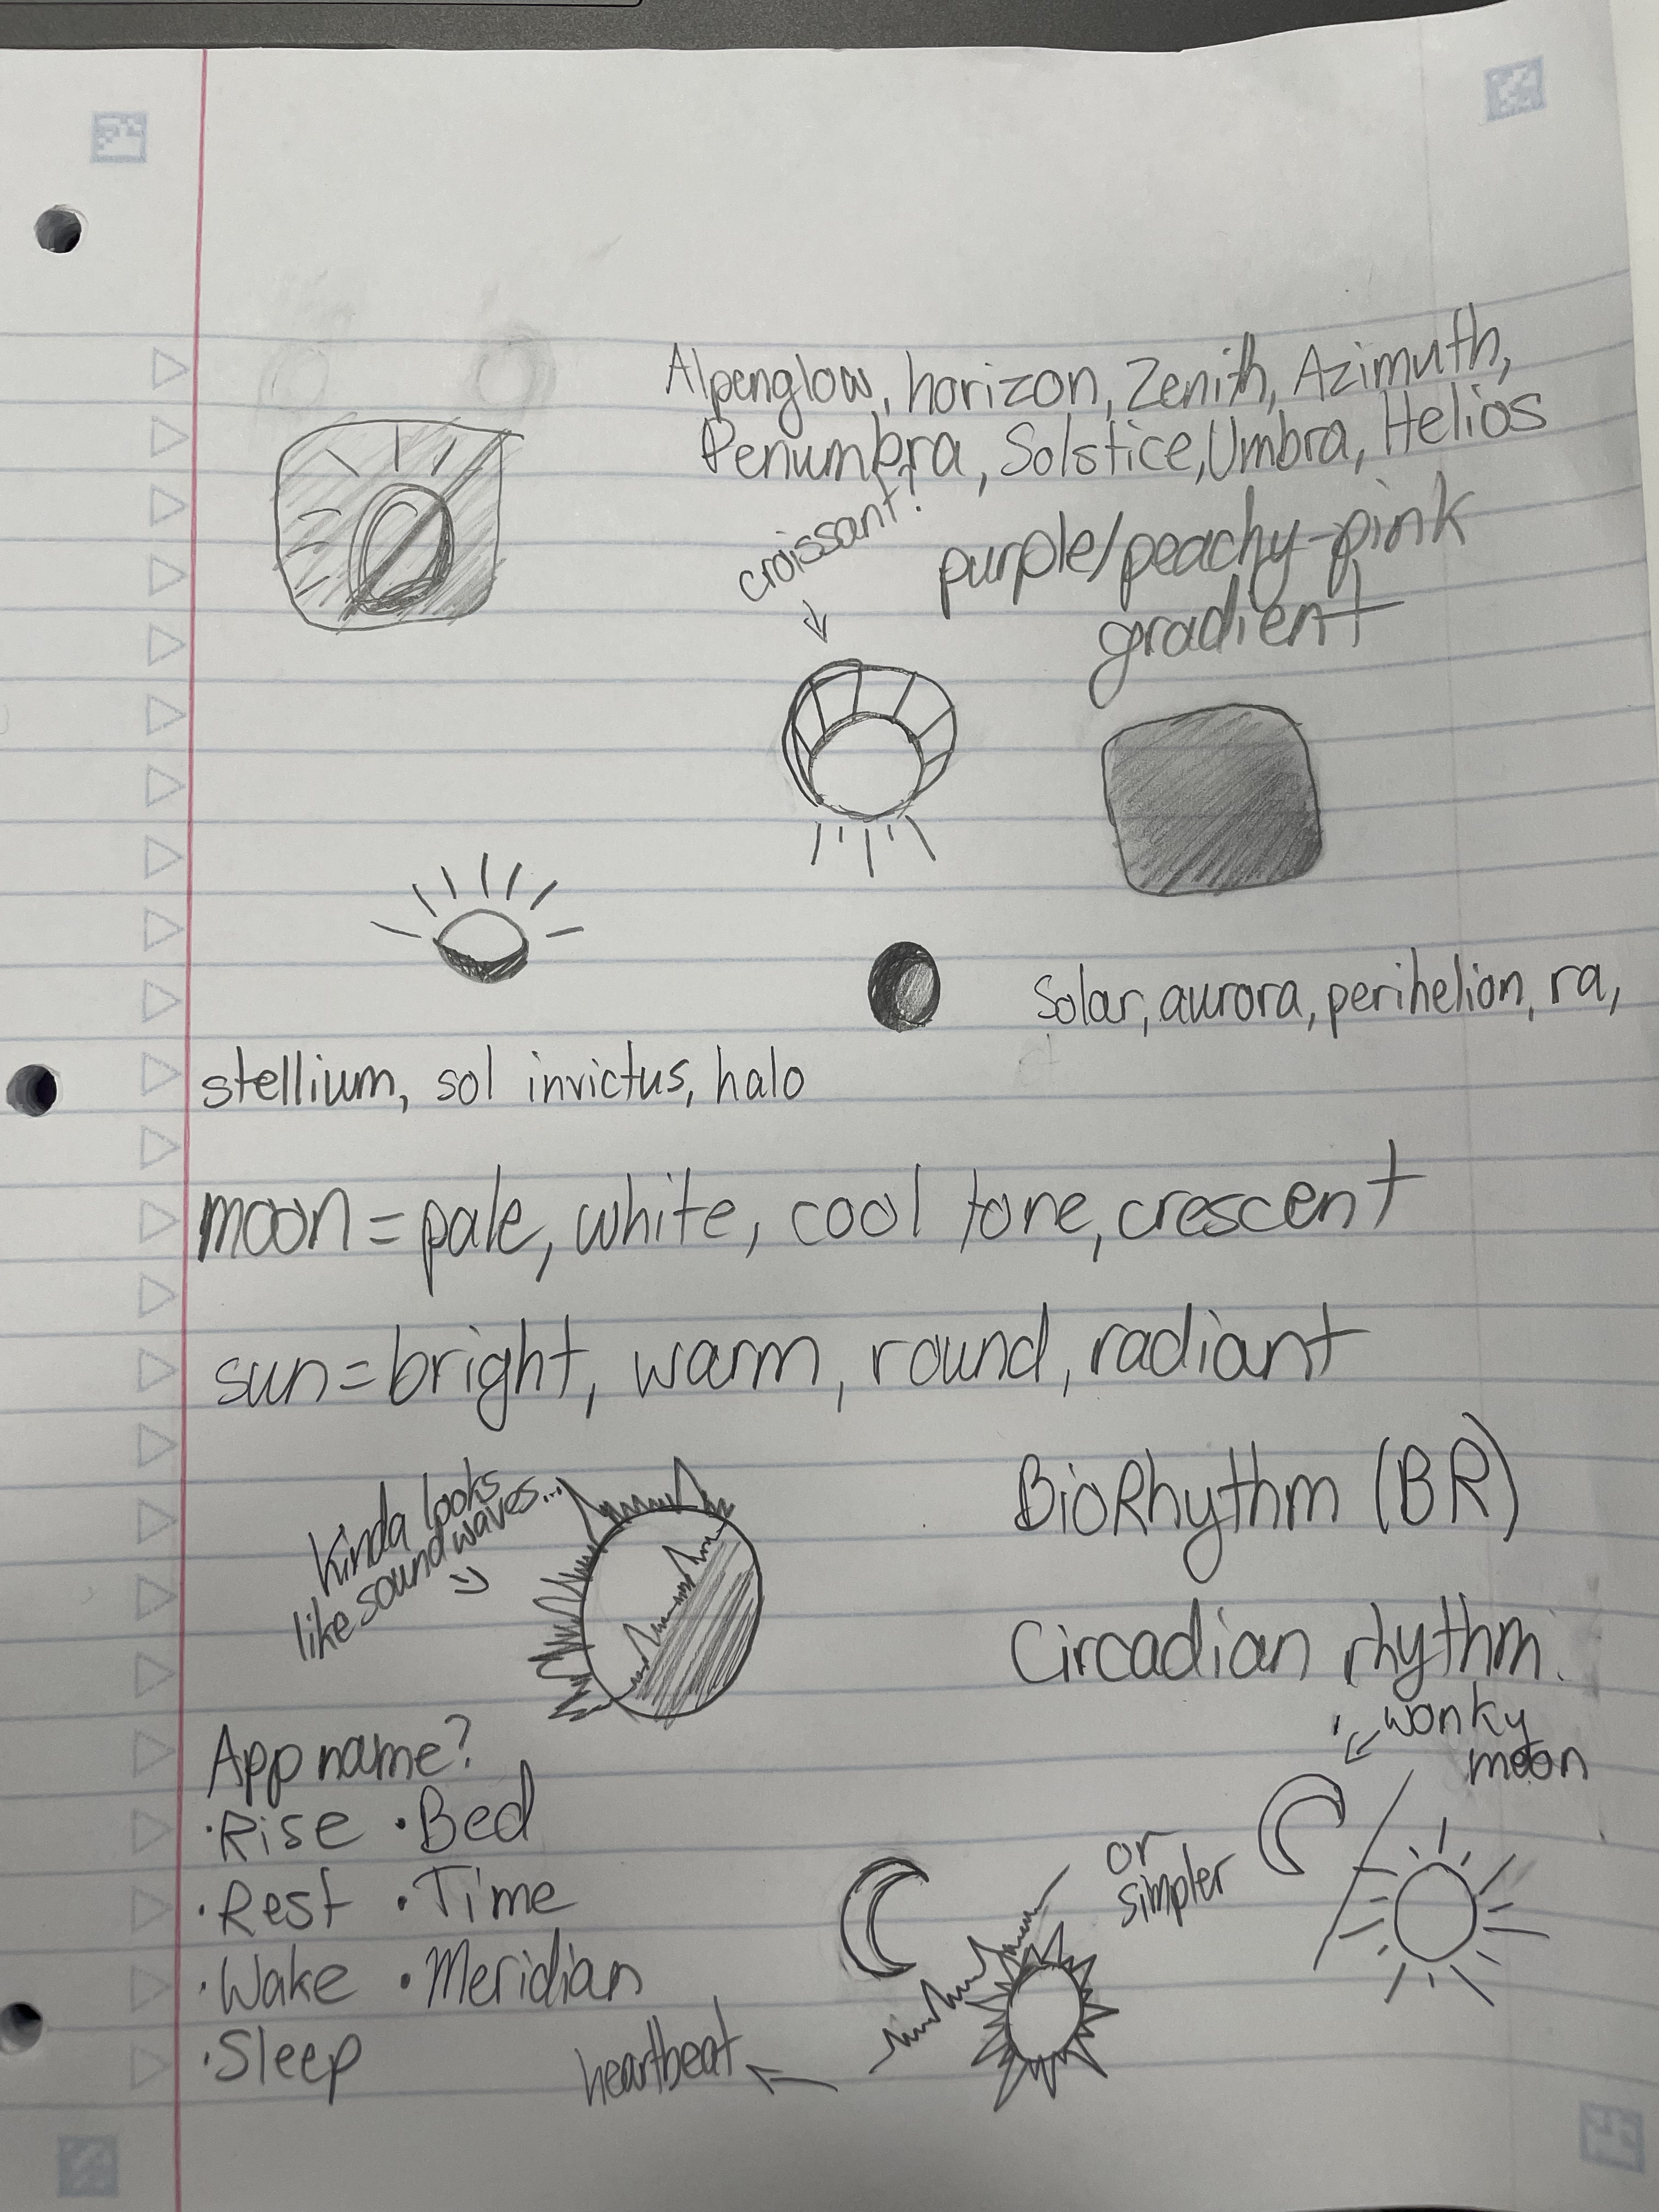 Alpenglow, horizon, Zenith, Azimuth,
Penumbra, Solstice, Umbra, Helios
croissant?
purple/peachy-pink
gradient
Solar, aurora, perihelion, ra,
stellium, sol invictus, halo
moon = pale, white, cool tone, crescent
sun = bright, warm, round, radiant
Kinda looks
like sound waves...
BioRhythm (BR)
Circadian rhythm
App name?
· Rise · Bed
· Rest · Time
· Wake · Meridian
· Sleep
wonky
moon
or
simpler
heartbeat